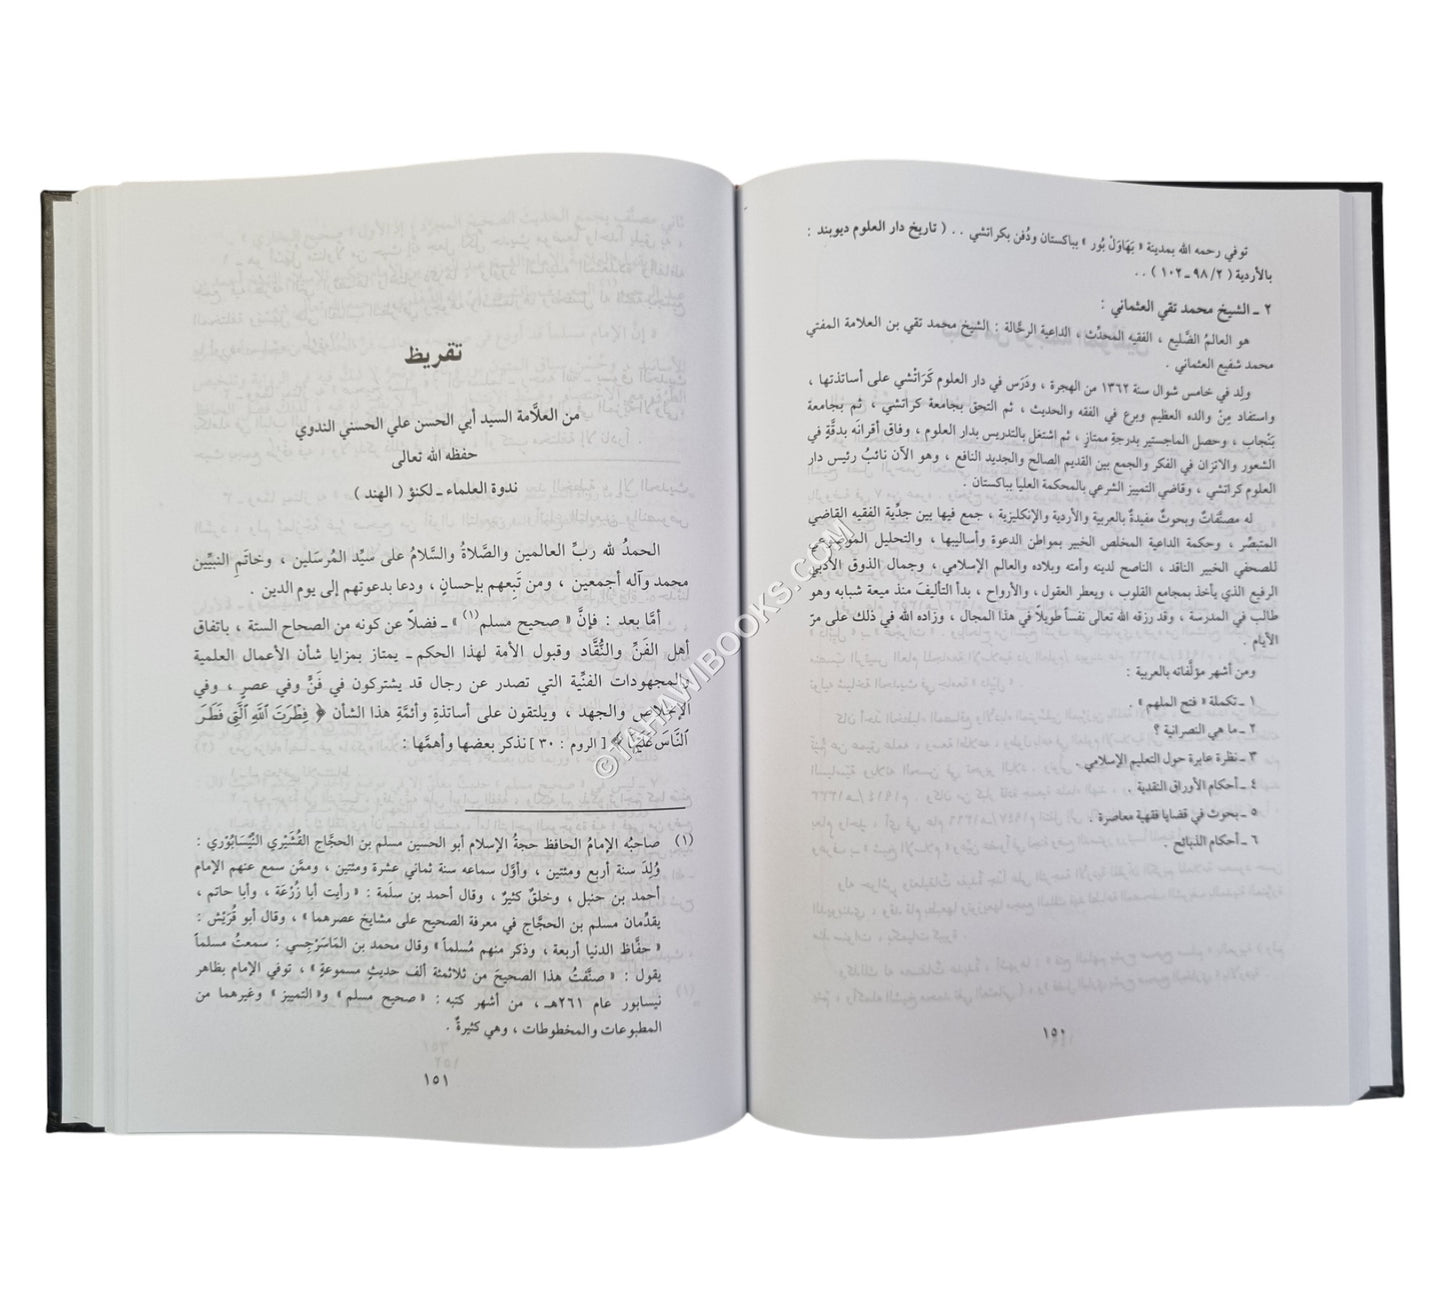 توفي رحمه الله بمدينة « بَهَاوَلْ بُور » بباكستان ودُفن بكراتشي . . ( تاريخ دار العلوم ديوبند :
بالأردية ( ٢/ ٩٨ ـ ١٠٢ ) . .
٢ ـ الشيخ محمد تقي العثماني :
هو العالمُ الضَّليع ، الفقيه المحدِّث ، الداعية الرحَّالة : الشيخ محمد تقي بن العلامة المفتي
محمد شفيع العثماني .
ولد في خامس شوال سنة ١٣٦٢ من الهجرة ، ودَرَس في دار العلوم كَرَاتْشي على أساتذتها ،
واستفاد مِنْ والده العظيم وبرع في الفقه والحديث ، ثم التحق بجامعة كراتشي ، ثم بجامعة
بَنْجاب ، وحصل الماجستير بدرجةِ ممتازٍ ، ثم اشتغل بالتدريس بدار العلوم ، وفاق أقرانَه بدقَّةٍ في
الشعور والاتزان في الفكر والجمع بين القديم الصالح والجديد النافع ، وهو الآن نائبُ رئيس دار
العلوم كراتشي ، وقاضي التمييز الشرعي بالمحكمة العليا بباكستان .
له مصنَّفاتٌ وبحوثٌ مفيدةٌ بالعربية والأردية والإنكليزية ، جمع فيها بين جدِّية الفقيه القاضي
المتبصِّر ، وحكمة الداعية المخلص الخبير بمواطن الدعوة وأساليبها ، والتحليل الموضوعي
للصحفي الخبير الناقد ، الناصح لدينه وأمته وبلاده والعالم الإسلامي ، وجمال الذوق الأدبي
الرفيع الذي يأخذ بمجامع القلوب ، ويعطر العقول ، والأرواح ، بدأ التأليفَ منذ ميعة شبابه وهو
طالب في المدرسة ، وقد رزقه الله تعالى نفساً طويلاً في هذا المجال ، وزاده الله في ذلك على مرّ
الأيام .
ومن أشهر مؤلَّفاته بالعربية :
١ ـ تكملة « فتح الملهم » .
٢ ـ ما هي النصرانية ؟
٣ ـ نظرة عابرة حول التعليم الإسلامي .
٤ ـ أحكام الأوراق النقدية .
٥ ـ بحوث في قضايا فقهية معاصرة .
٦ ـ أحكام الذبائح .
تقريظ
من العلاَّمة السيد أبي الحسن علي الحسني الندوي
حفظه الله تعالى
ندوة العلماء ـ لكنؤ ( الهند )
الحمدُ لله ربِّ العالمين والصَّلاةُ والسَّلامُ على سيِّد المُرسَلين ، وخاتَمِ النبيِّين
محمد وآله أجمعين ، ومن تَبِعهم بإحسانٍ ، ودعا بدعوتهم إلى يوم الدين .
أمَّا بعد : فإنَّ « صحيح مسلم(١) » ـ فضلاً عن كونه من الصحاح الستة ، باتفاق
أهل الفَنِّ والنُّقَّاد وقبول الأمة لهذا الحكم ـ يمتاز بمزايا شأن الأعمال العلمية
والمجهودات الفنِّية التي تصدر عن رجال قد يشتركون في فَنٍّ وفي عصرٍ ، وفي
الإخلاص والجهد ، ويلتقون على أساتذةٍ وأئمَّةِ هذا الشأن ﴿ فِطْرَتَ اللَّهِ الَّتِي فَطَرَ
النَّاسَ عَلَيْهَا ﴾ [ الروم : ٣٠ ] نذكر بعضها وأهمَّها :
(١) صاحبُه الإمامُ الحافظ حجةُ الإسلام أبو الحسين مسلم بن الحجَّاج القُشَيْري النَّيْسَابُوْري :
وُلِدَ سنة أربع ومئتين ، وأوَّل سماعه سنة ثماني عشرة ومئتين ، وممَّن سمع عنهم الإمام
أحمد بن حنبل ، وخلقٌ كثيرٌ ، وقال أحمد بن سلَمة : « رأيت أبا زُرْعَة ، وأبا حاتم ،
يقدِّمان مسلم بن الحجَّاج في معرفة الصحيح على مشايخ عصرهما » ، وقال أبو قُرَيْش :
« حفَّاظ الدنيا أربعة ، وذكر منهم مُسلماً » وقال محمد بن المَاسَرْجِسي : سمعتُ مسلماً
يقول : « صنَّفتُ هذا الصحيحَ من ثلاثمئة ألف حديثٍ مسموعةٍ » ، توفي الإمام بظاهر
نيسابور عام ٢٦١هـ ، من أشهر كتبه : « صحيح مسلم » و« التمييز » وغيرهما من
المطبوعات والمخطوطات ، وهي كثيرةٌ .
١٥١
©TAHAWIBOOKS.COM